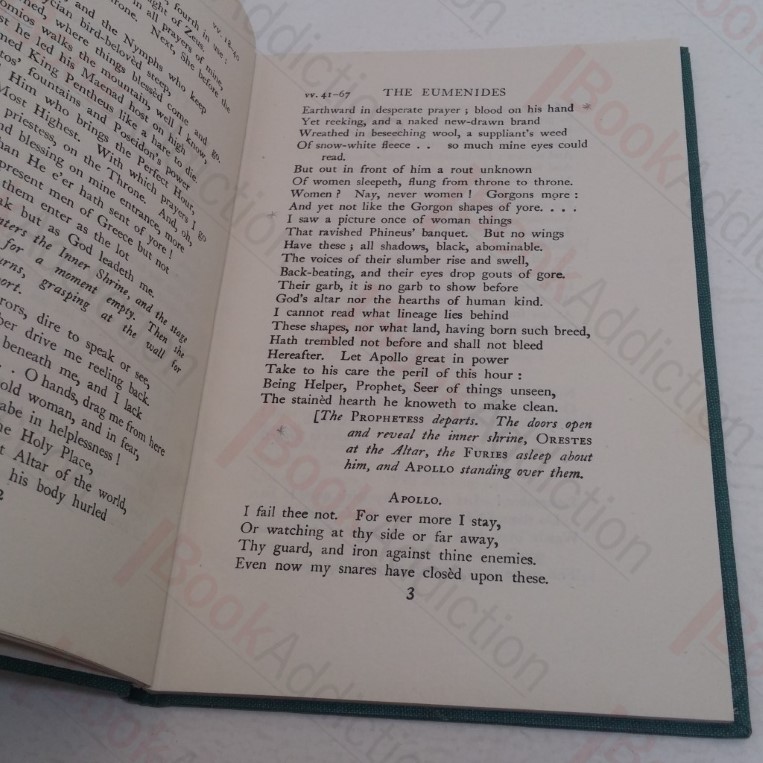 vv. 18-40
fourth in use;
ght of Zeus.
in all prayers of mine,
hrone. Next, She before the
and the Nymphs who keep
ycian bird-beloved steep,
nomed, where things blessèd come and go.
omios walks the mountain, well I know,
st he led his Maenad host on high
med King Pentheus like a hare to die.
tos' fountains and Poseidon's power
Him who brings the Perfect Hour,
Most Highest. With which prayers I go
priestess, on the Throne. And, oh,
nd blessing on mine entrance, more
han He e'er hath sent of yore!
present men of Greece but not
them enter as the lot
ak but as God leadeth me.
nters the Inner Shrine, and the stage
for a moment empty. Then she
urns, grasping at the wall for
port.
rors, dire to speak or see,
ber drive me reeling back
beneath me, and I lack
. . O hands, drag me from here
old woman, and in fear,
abe in helplessness!
he Holy Place,
t Altar of the world,
his body hurled
2
vv. 41-67 THE EUMENIDES
Earthward in desperate prayer; blood on his hand
Yet reeking, and a naked new-drawn brand
Wreathed in beseeching wool, a suppliant's weed
Of snow-white fleece . . so much mine eyes could
read.
But out in front of him a rout unknown
Of women sleepeth, flung from throne to throne.
Women? Nay, never women! Gorgons more:
And yet not like the Gorgon shapes of yore. . . .
I saw a picture once of woman things
That ravished Phineus' banquet. But no wings
Have these; all shadows, black, abominable.
The voices of their slumber rise and swell,
Back-beating, and their eyes drop gouts of gore.
Their garb, it is no garb to show before
God's altar nor the hearths of human kind.
I cannot read what lineage lies behind
These shapes, nor what land, having born such breed,
Hath trembled not before and shall not bleed
Hereafter. Let Apollo great in power
Take to his care the peril of this hour:
Being Helper, Prophet, Seer of things unseen,
The stainèd hearth he knoweth to make clean.
[The PROPHETESS departs. The doors open
and reveal the inner shrine, ORESTES
at the Altar, the FURIES asleep about
him, and APOLLO standing over them.
APOLLO.
I fail thee not. For ever more I stay,
Or watching at thy side or far away,
Thy guard, and iron against thine enemies.
Even now my snares have closèd upon these.
3
BookAddiction